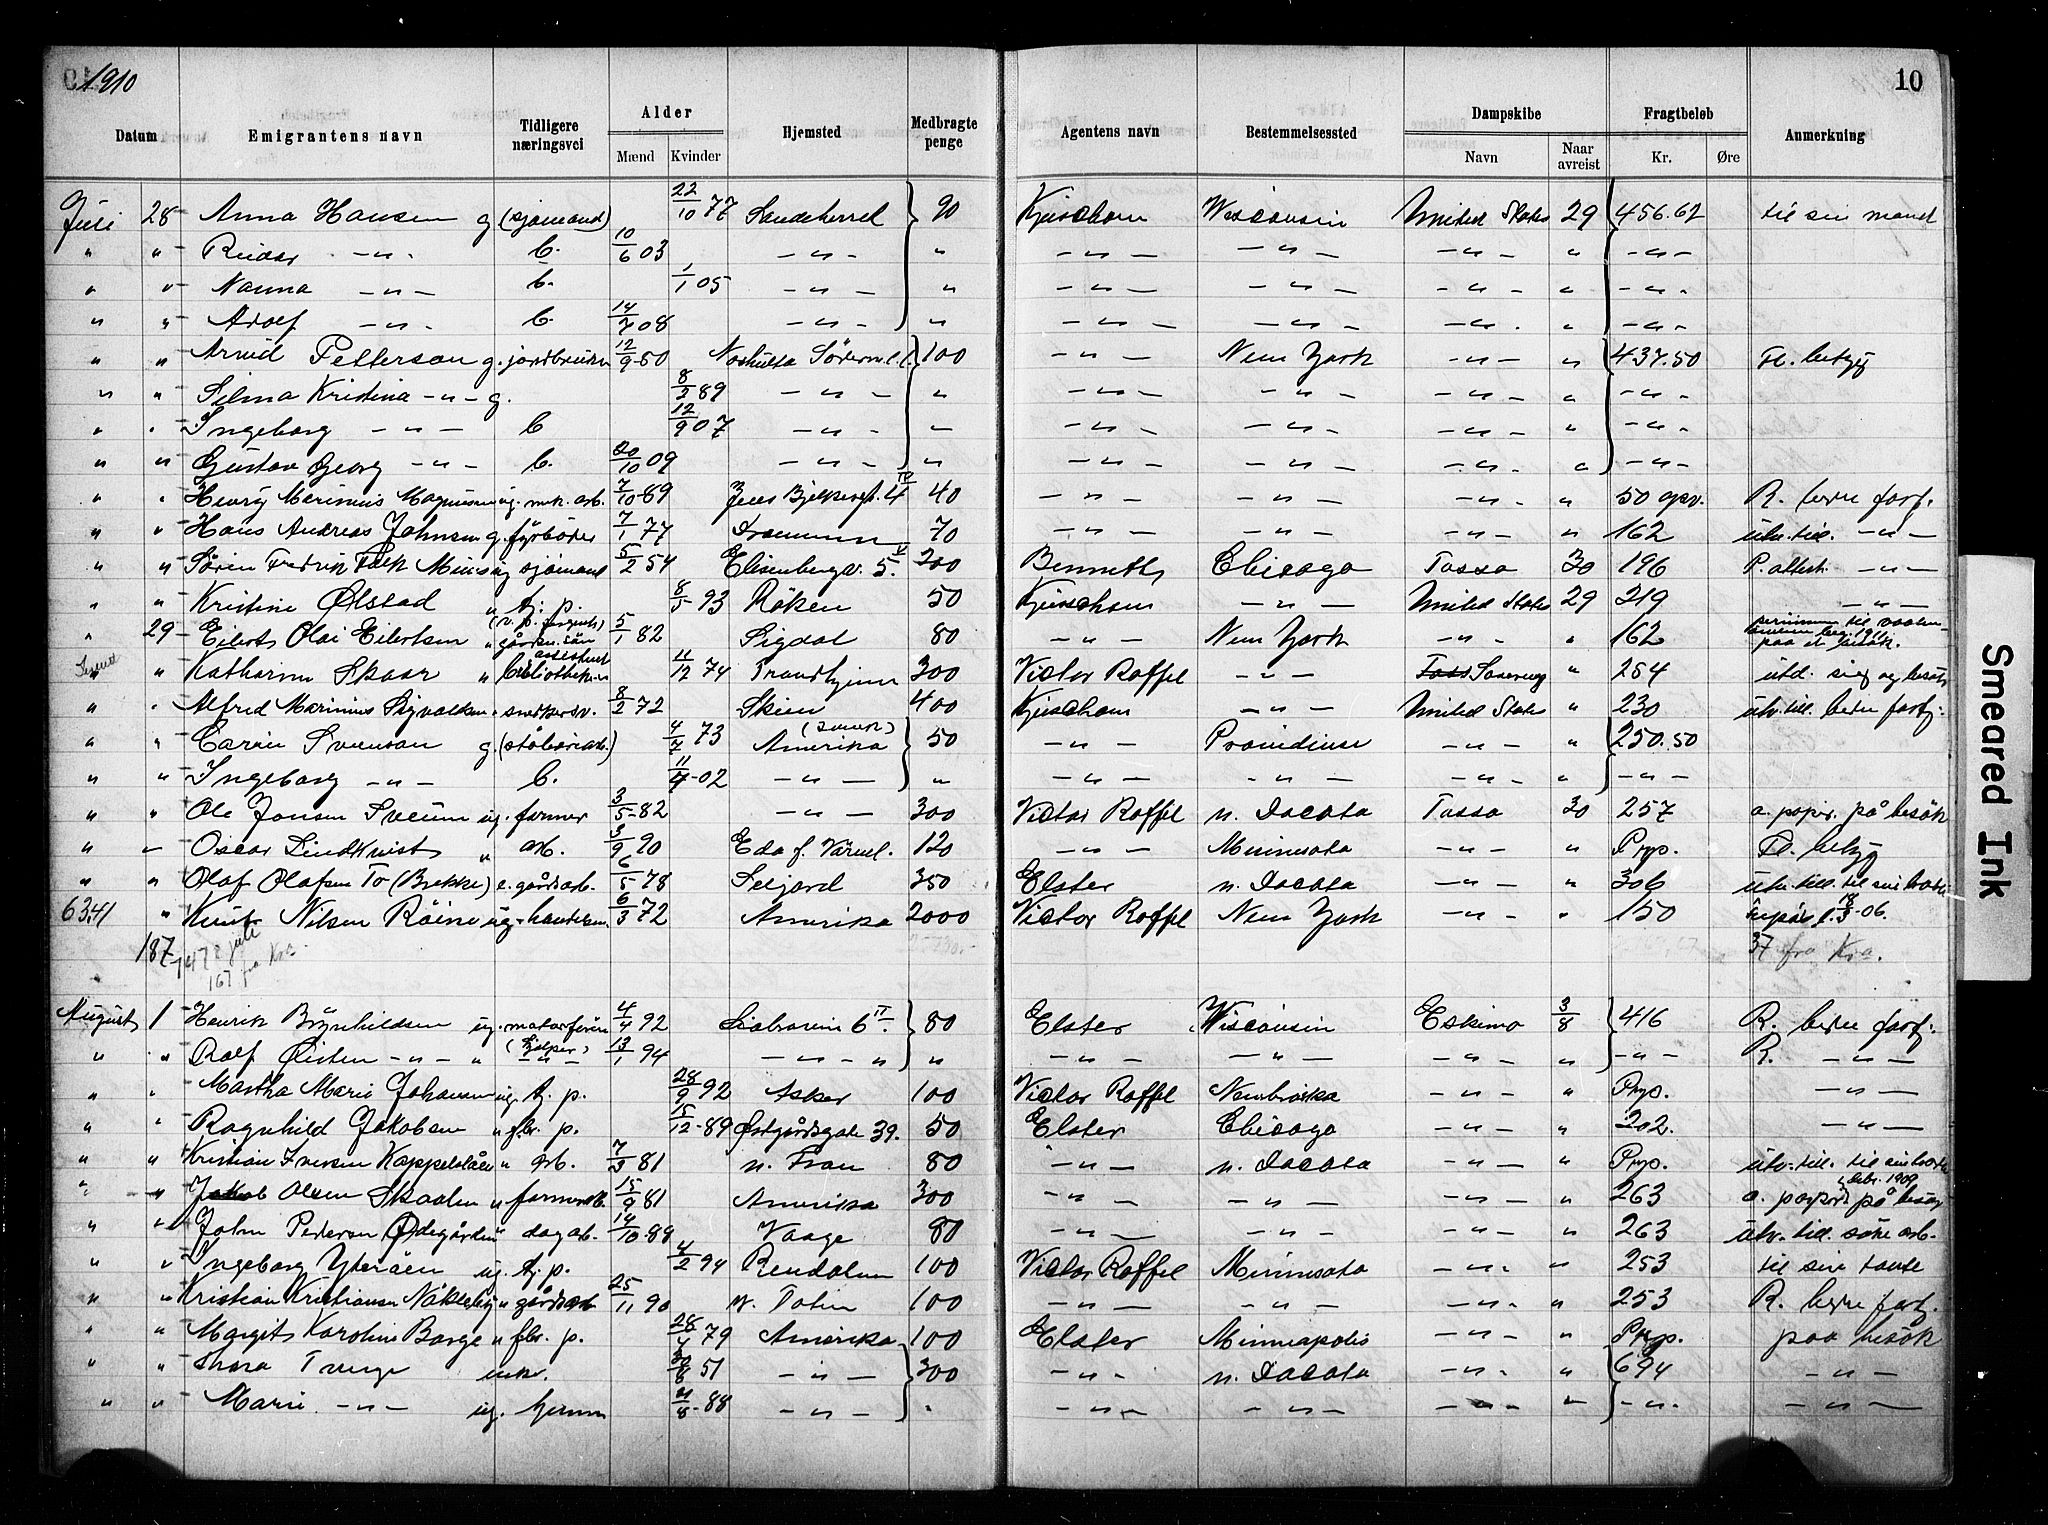 1910
10
Datum Emigrantens navn Tidligere næringsvei Alder Mænd Kvinder Hjemsted Medbragte penge Agentens navn Bestemmelsessted Dampskibe Navn Naar avreist Fragtbeløb Kr. Øre Anmerkning
Juli 28 Anna Hansen g (sjømand) 22/10 77 Sandeherred 90 Wisconsin United States 29 456.62 til sin mand
" " Reidar -"- b. 10/6 03 -"- " -"- -"- -"- " -"-
" " Nanna -"- b. 1/1 05 -"- " -"- -"- -"- " -"-
" " Adolf -"- b. 14/7 08 -"- " -"- -"- -"- " -"-
" " Arvid Petterson g. jordbruker 12/9 -50 100 -"- New York -"- " 437.50 Fl. betyg
" " Selma Kristina -"- g. 8/2 89 -"- " -"- -"- -"- " -"-
" " Ingeborg -"- b 12/9 07 -"- " -"- -"- -"- " -"-
" " Gustav Georg -"- b. 20/10 09 -"- " -"- -"- -"- " -"-
" " Henry Marinius Magnussen ug. mek. arb. 7/10 -89 Jens Bjelkesgt. 4 IV 40 -"- -"- -"- " 50 opv. R. bedre fortj.
" " Hans Andreas Johnsen g. fyrbøder 7/1 77 Drammen 70 -"- -"- -"- " 162 utv. till. -"-
" " Sören Fredrik Falk ug sjømand 5/2 54 Elisenbergv. 5. V 200 Bennetts Chicago Tasso 30 196 P. attest -"-
" " Kristine Ølstad " tj. p. 8/5 93 Röken 50 -"- United States 29 219 -"-
" 29 Eilert Olai Eilertsen " 5/1 82 Sigdal 80 -"- New York -"- " 162 paa et besök.
" " Katharina Skaar " assistent bibliothek 11/12 74 Trondhjem 300 Victor Roffel -"- " 254 utd. sig og besök
" " Alfred Marinius Sigvaldsen " snekkersv. 8/2 72 Skien 400 -"- United States " 230 utv. till. bedre fortj.
" " Carin Svenson g 4/7 73 Amerika (svensk) 50 -"- Providense -"- " 250.50
" " Ingeborg -"- b. 11/4 -02 -"- " -"- -"- -"- " -"-
" " Ole Jonsen Sveum ug. farmer 3/5 -82 -"- 300 Victor Roffel n. Dacota Tasso 30 257 a. papir. på besök
" " Oscar Lindkvist " arb. 3/9 90 Eda f. Värml. 120 -"- Minnesota -"- " Prp. Fl. betyg
" " Olaf Olafsen To (Brekke) e. gårdsarb. 6/5 78 Seljord 350 Elster n. Dacota -"- " 306 utv. till. til sin
6341 " Knut Nilsen Röine ug. handelsm. 6/3 72 Amerika 2000 Victor Roffel New York -"- " 150 -06.
187 147 i juli 37 fra Kra.
167 fra Kra
August 1 Henrik Brynhildsen ug. motorförer 4/4 92 6 II. 80 Elster Wisconsin Eskimo 3/8 416 R. bedre fortj.
" " Rolf Öisten -"- " (hjelper) 13/1 94 -"- " " -"- -"- -"- " -"- R. -"-
" " Martha Marie Johansen ug. tj. p. 28/9 92 Asker 100 Victor Roffel Newbraska -"- " Prp. -"-
" " Ragnhild Jakobsen " fbr. p. 15/12 -89 Østgårdsgate 39. 50 Elster Chicago -"- " 202. -"-
" " Kristian Iversen " arb. 7/3 81 n. Fron 80 -"- n. Dacota -"- " Prp. utv. till. til sin
" " Jakob Olsen Skaalen " farmerarb. 15/9 81 Amerika 300 -"- -"- -"- " 263 a. papir på besög febr. 1909
" " John Pedersen Ødegården " dagarb. 14/10 -88 Vaage 80 -"- -"- -"- " 263 utv. till. söke arb.
" " Ingeborg Yteråen ug. tj. p. 4/2 94 Rendalen 100 Victor Roffel Minnesota -"- " 253 til sin tante
" " Kristian Kristiansen Nökleby " gårdsarb 25/11 90 v. Toten 100 -"- -"- -"- " 253 R. bedre fortj.
" " Margit Karoline Borge " fbr. p. 28/4 79 Amerika 100 Elster Minneapolis -"- " Prp. paa besök
" " Thora Tvenge enke. 30/8 51 -"- 300 -"- n. Dacota -"- " 694 -"-
" " Marie -"- ug. hjemme 8 -88 -"- " -"- -"- -"- " -"- -"-
Smeared Ink